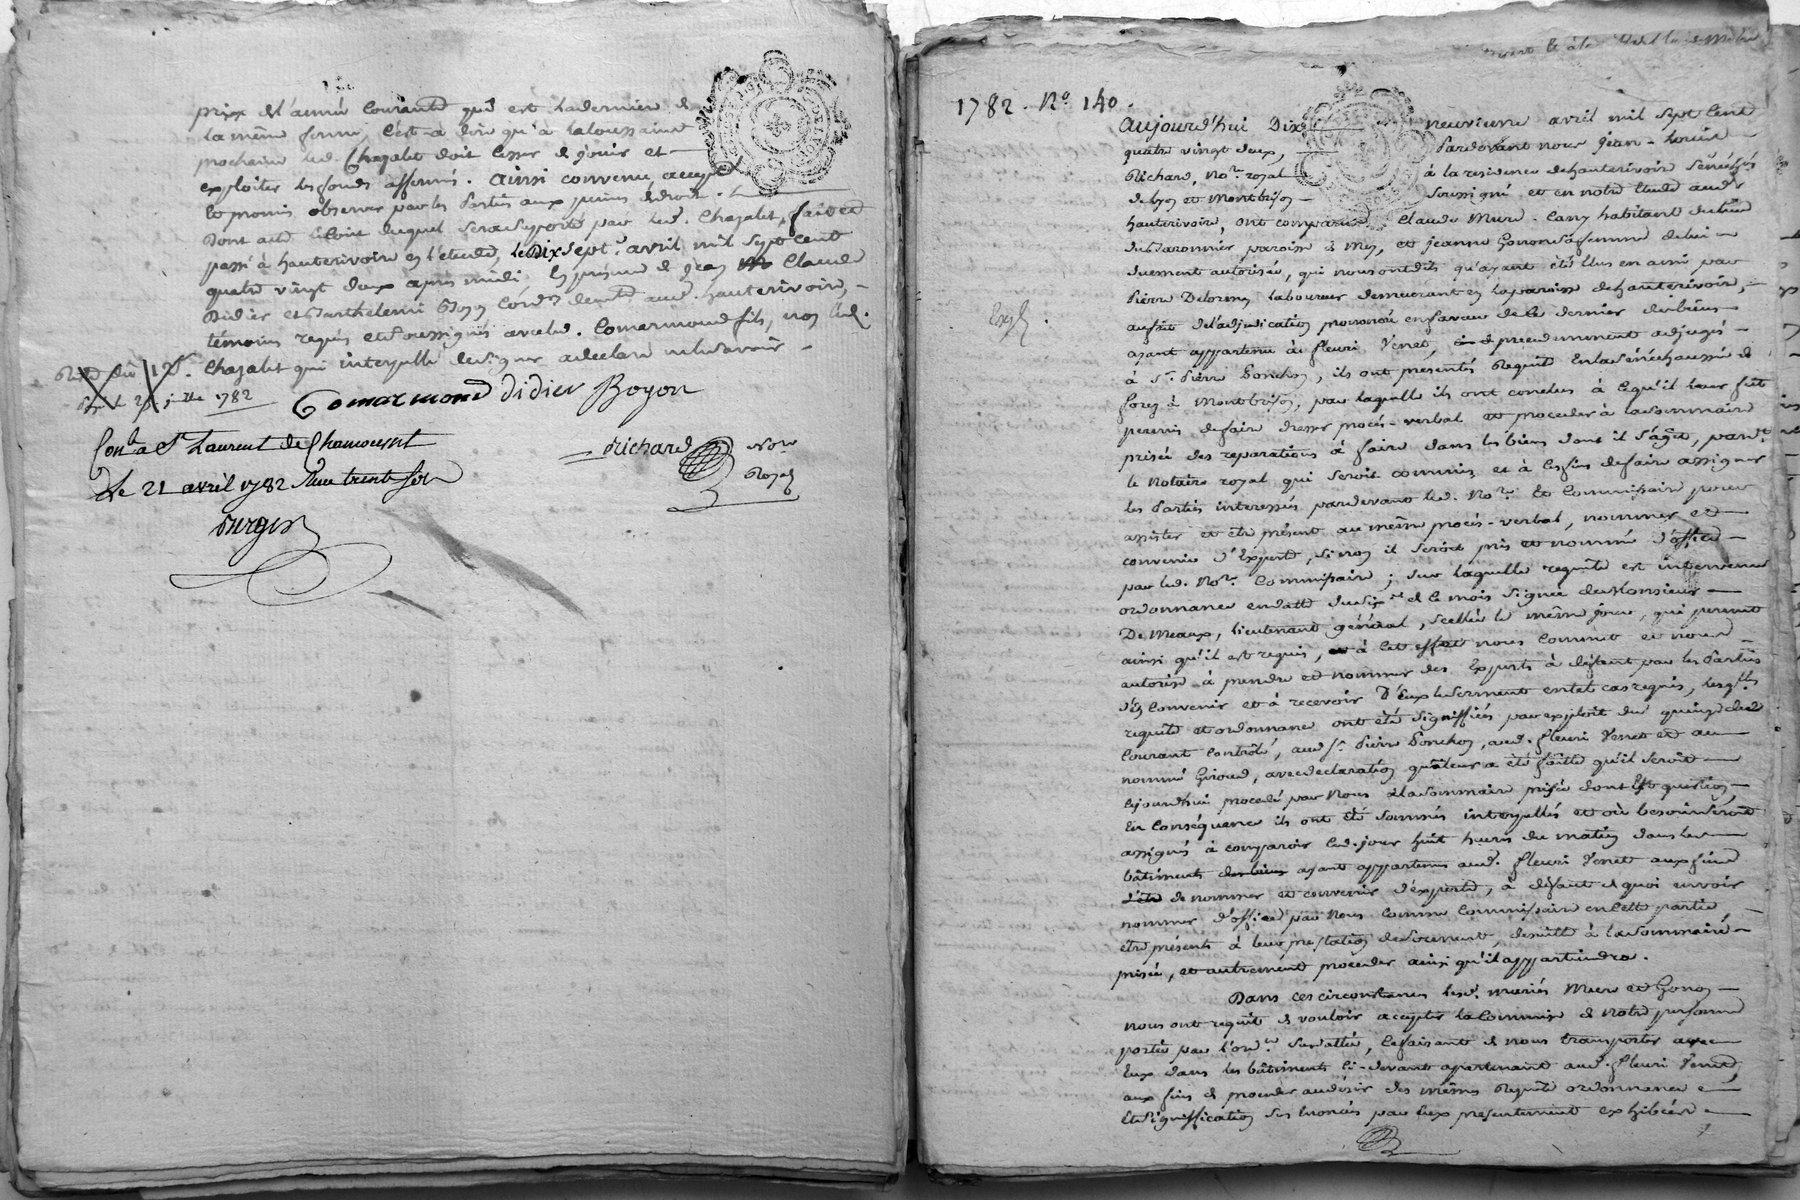 prix de l'année Courante qui est la derniere de
la même ferme, C'est-à dire qu'à la toussaint
prochaine led. Chazalet doit Cesser de jouir et
exploiter les fonds affermés. Ainsi convenu, accepté
et promis observer par les Parties aux peines de droit.
Dont acte le Coût duquel sera supporté par led. Chazalet, fait et
passé à hauterivoire en l'étude, le Dix Sept.e avril mil Sept Cent
quatre vingt deux après midi. En présence de Claude
Didier et Barthelemi Boyon aud. hauterivoire,
témoins requis et soussignés avec led. Comarmond fils, non led.
Chazalet qui interpellé de signer a déclaré ne le savoir
1782
Comarmond Didier Boyon
Con.lé a St Laurent de Chamousset
Le 21 avril 1782 Reçu trente sols
Richard Nore
Royal
1782. No. 140.
Aujourd'hui Dix neuvieme avril mil Sept Cent
quatre vingt deux, Pardevant nous Jean-Louis
Richard, No.re royal à la residence de hauterivoire Sénéchaussées
de Lyon et Montbrison Soussigné et en notre Etude aud.
hauterivoire, ont comparu Claude Mure habitant du lieu
paroisse de Meys, et jeanne Gonon sa femme de lui
duement autorisée, qui nous ont dits qu'ayant été élus en ami par
Pierre Delorme Laboureur demeurant en la paroisse de hauterivoire,
au fait de l'adjudication prononcée en faveur de ce dernier des biens
ayant appartenu à fleuri Venet, precedemment adjugés
à Sr. Pierre Ponchon, ils ont présentés Requête En la Sénéchaussée de
forez à Montbrison, par laquelle ils ont conclus à Ce qu'il leur fût
permis de faire dresser procès-verbal et proceder à la Sommaire
prisée des reparations à faire dans les biens dont il s'agit, pard.t
le Notaire royal qui seroit commis et à Ces fins de faire assigner
les Parties interessées pardevant led. No.re Et Commissaire pour
assister et être présent au même procès-verbal, nommer et
convenir d'Experts, Si non il seroit pris et nommé d'office
par led. No.re Commissaire; Sur laquelle requête est intervenue
ordonnance en datte du six de ce mois signée de Monsieur
De Meaux, Lieutenant général, Scellée le même jour, qui permet
ainsi qu'il est requis, à Cet effet nous Commet et nous
autorise à prendre et nommer des Experts à défaut par les Parties
d'en Convenir et à recevoir D'Eux le serment en tel cas requis, lesq.lles
requête et ordonnance ont été signiffiées par exploit du quinze du
Courant Contrôlé, aud. Sr. Pierre Ponchon, aud. fleuri Venet et au
nommé Giroud, avec declaration qui leur a été faitte qu'il seroit
cejourd'hui procedé par Nous à la Sommaire prisée dont Est question,
En Conséquence ils ont été Sommés interpellés et où besoin seroit
assignés à comparoir led. jour huit heures du matin dans les
bâtiments ayant appartenu aud. fleuri Venet aux fins
de nommer et convenir d'experts, à défaut de quoi en voir
nommer d'office par Nous comme Commissaire en Cette partie
être présents à leur prestation de serment, de suitte à la Sommaire
prisée, et autrement proceder ainsi qu'il appartiendra.
Dans ces circonstances lesd. mariés Mure et Gonon
nous ont requit de vouloir accepter la Commise de Notre personne
portée par l'ord.ce Susdattée, Ce faisant de nous transporter avec
Eux dans les bâtiments Ci-devant apartenant aud. fleuri Venet,
aux fins de proceder au désir des mêmes Requête ordonnance
et Signiffication Sus Enoncés par Eux presentement exhibées